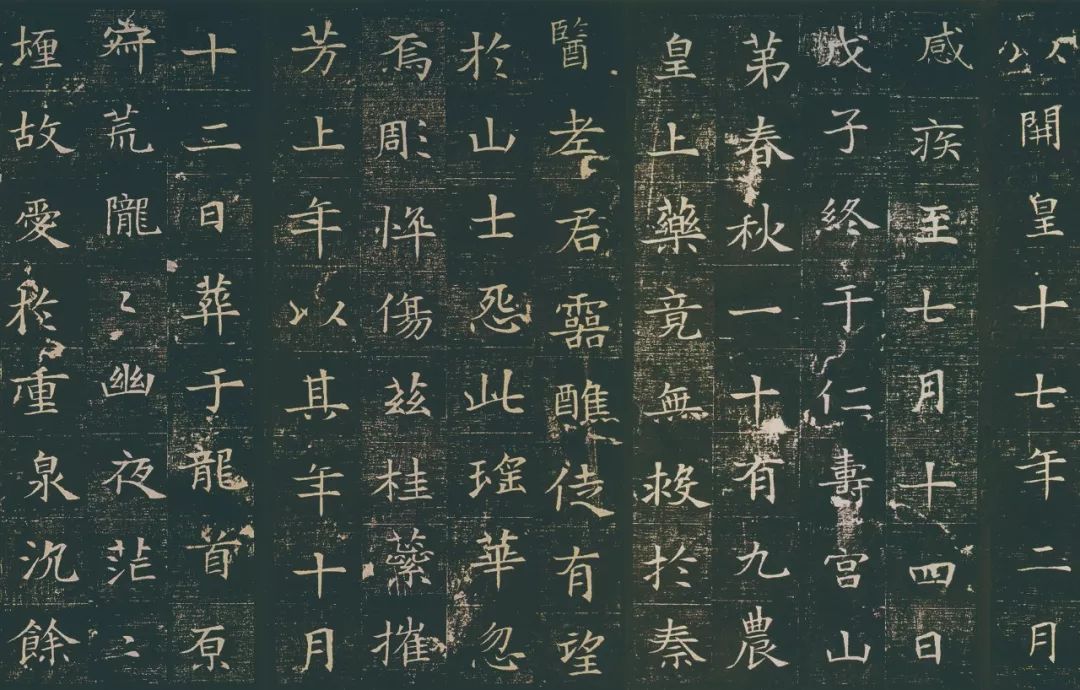 以開皇十七年二月
感疾至七月十四日
戊子終于仁壽宮山
第春秋一十有九農
皇上藥竟無救於秦
醫老君靈醮徒有望
於山士怨此瑤華忽
焉彫悴傷茲桂蘂摧
芳上年以其年十月
十二日葬于龍首原
荒隴〻幽夜茫〻
埋故愛於重泉沉餘